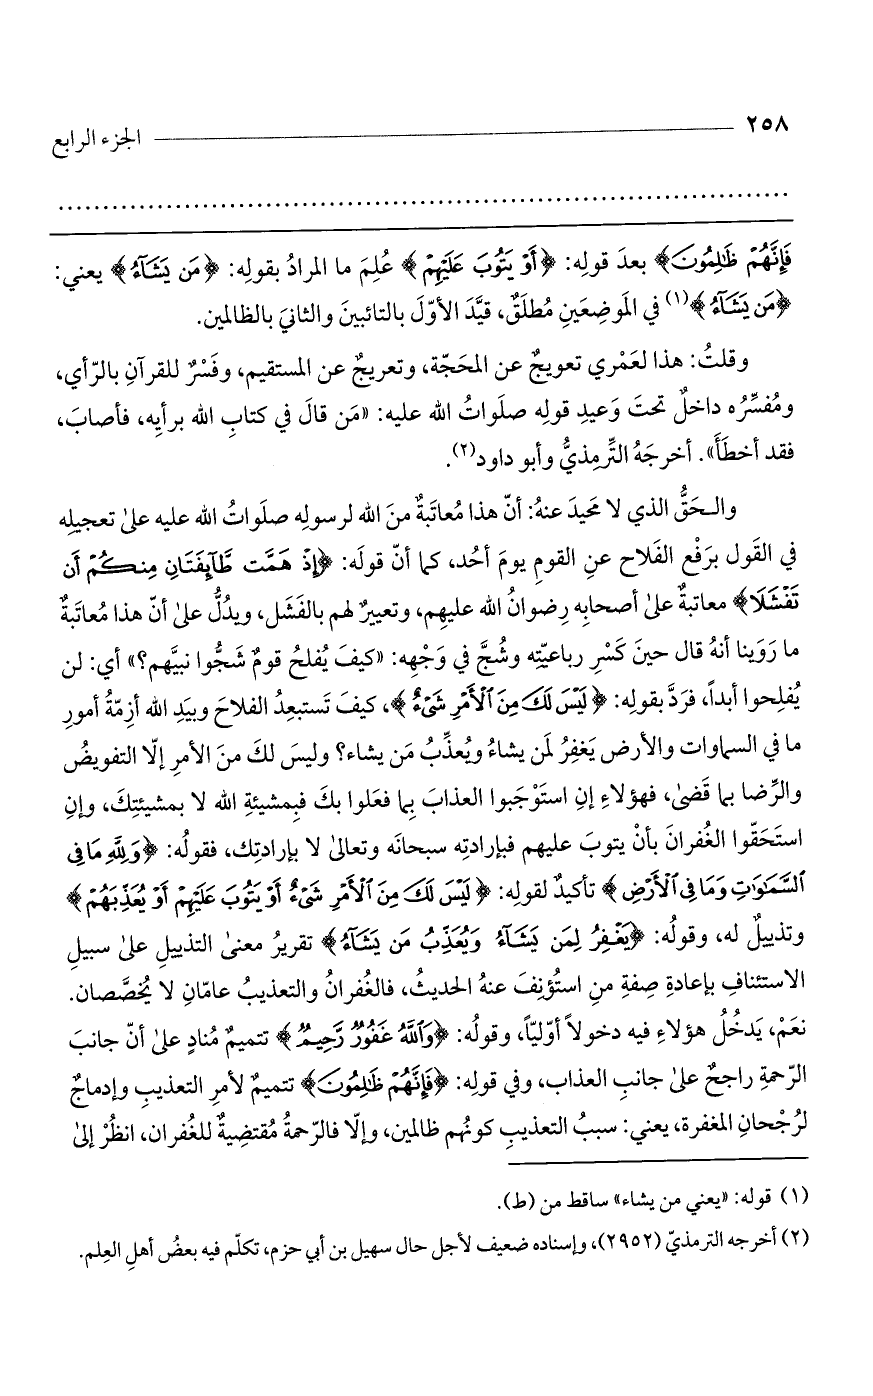 ٢٥٨ الجزء الرابع
فَإِنَّهُمْ ظَٰلِمُونَ﴾ بعدَ قولِه: ﴿أَوْ يَتُوبَ عَلَيْهِمْ﴾ عُلِمَ ما المرادُ بقولِه: ﴿مَن يَشَآءُ﴾ يعني:
﴿مَن يَشَآءُ﴾(١) في المَوضِعَينِ مُطلَقٌ، قيَّدَ الأوّلَ بالتائبينَ والثانيَ بالظالمين.
وقلتُ: هذا لعَمْري تعويجٌ عن المحَجّة، وتعريجٌ عن المستقيم، وفَسْرٌ للقرآنِ بالرّأي،
ومُفسِّرُه داخلٌ تحتَ وَعيدِ قولِه صلَواتُ الله عليه: «مَن قالَ في كتابِ الله برأيِه، فأصابَ،
فقد أخطَأَ». أخرجَهُ التِّرمِذيُّ وأبو داود(٢).
والحَقُّ الذي لا مَحيدَ عنهُ: أنّ هذا مُعاتَبةٌ منَ الله لرسولِه صلَواتُ الله عليه علىٰ تعجيلِه
في القَول برَفْعِ الفَلاحِ عنِ القومِ يومَ أُحُد، كما أنّ قولَه: ﴿إِذْ هَمَّت طَّآئِفَتَانِ مِنكُمْ أَن
تَفْشَلَا﴾ معاتبةٌ علىٰ أصحابِه رِضوانُ الله عليهِم، وتعييرٌ لهم بالفَشَل، ويدُلُّ علىٰ أنّ هذا مُعاتَبةٌ
ما رَوَينا أنهُ قال حينَ كَسْرِ رباعيّتِه وشُجَّ في وَجْهِه: «كيفَ يُفلحُ قومٌ شَجُّوا نبيَّهم؟» أي: لن
يُفلِحوا أبداً، فرَدَّ بقولِه: ﴿لَيْسَ لَكَ مِنَ ٱلْأَمْرِ شَىْءٌ﴾، كيفَ تَستبعِدُ الفلاحَ وبيَدِ الله أزِمّةُ أمورِ
ما في السماوات والأرض يَغفِرُ لمَن يشاءُ ويُعذِّبُ مَن يشاء؟ وليسَ لكَ منَ الأمرِ إلّا التفويضُ
والرِّضا بما قَضىٰ، فهؤلاءِ إنِ استَوْجَبوا العذابَ بما فعَلوا بكَ فبِمشيئةِ الله لا بمشيئتِكَ، وإنِ
استَحَقّوا الغُفرانَ بأنْ يتوبَ عليهم فبإرادتِه سبحانَه وتعالىٰ لا بإرادتِك، فقولُه: ﴿وَلِلَّهِ مَا فِى
ٱلسَّمَٰوَٰتِ وَمَا فِى ٱلْأَرْضِ﴾ تأكيدٌ لقولِه: ﴿لَيْسَ لَكَ مِنَ ٱلْأَمْرِ شَىْءٌ أَوْ يَتُوبَ عَلَيْهِمْ أَوْ يُعَذِّبَهُمْ﴾
وتذييلٌ له، وقولُه: ﴿يَغْفِرُ لِمَن يَشَآءُ وَيُعَذِّبُ مَن يَشَآءُ﴾ تقريرُ معنىٰ التذييلِ علىٰ سبيلِ
الاستئنافِ بإعادةِ صِفةِ منِ استُؤنِفَ عنهُ الحديثُ، فالغُفرانُ والتعذيبُ عامّانِ لا يُخصَّصان.
نعَمْ، يَدخُلُ هؤلاءِ فيه دخولاً أوّليّاً، وقولُه: ﴿وَٱللَّهُ غَفُورٌ رَّحِيمٌ﴾ تتميمٌ مُنادٍ علىٰ أنّ جانبَ
الرّحمةِ راجحٌ علىٰ جانبِ العذاب، وفي قولِه: ﴿فَإِنَّهُمْ ظَٰلِمُونَ﴾ تتميمٌ لأمرِ التعذيبِ وإدماجٌ
لرُجْحانِ المغفرة، يعني: سببُ التعذيبِ كونُهم ظالمين، وإلّا فالرّحمةُ مُقتضِيةٌ للغُفران، انظُرْ إلىٰ
(١) قوله: «يعني من يشاء» ساقط من (ط).
(٢) أخرجه الترمذيّ (٢٩٥٢)، وإسناده ضعيف لأجل حال سهيل بن أبي حزم، تكلّم فيه بعضُ أهلِ العِلم.